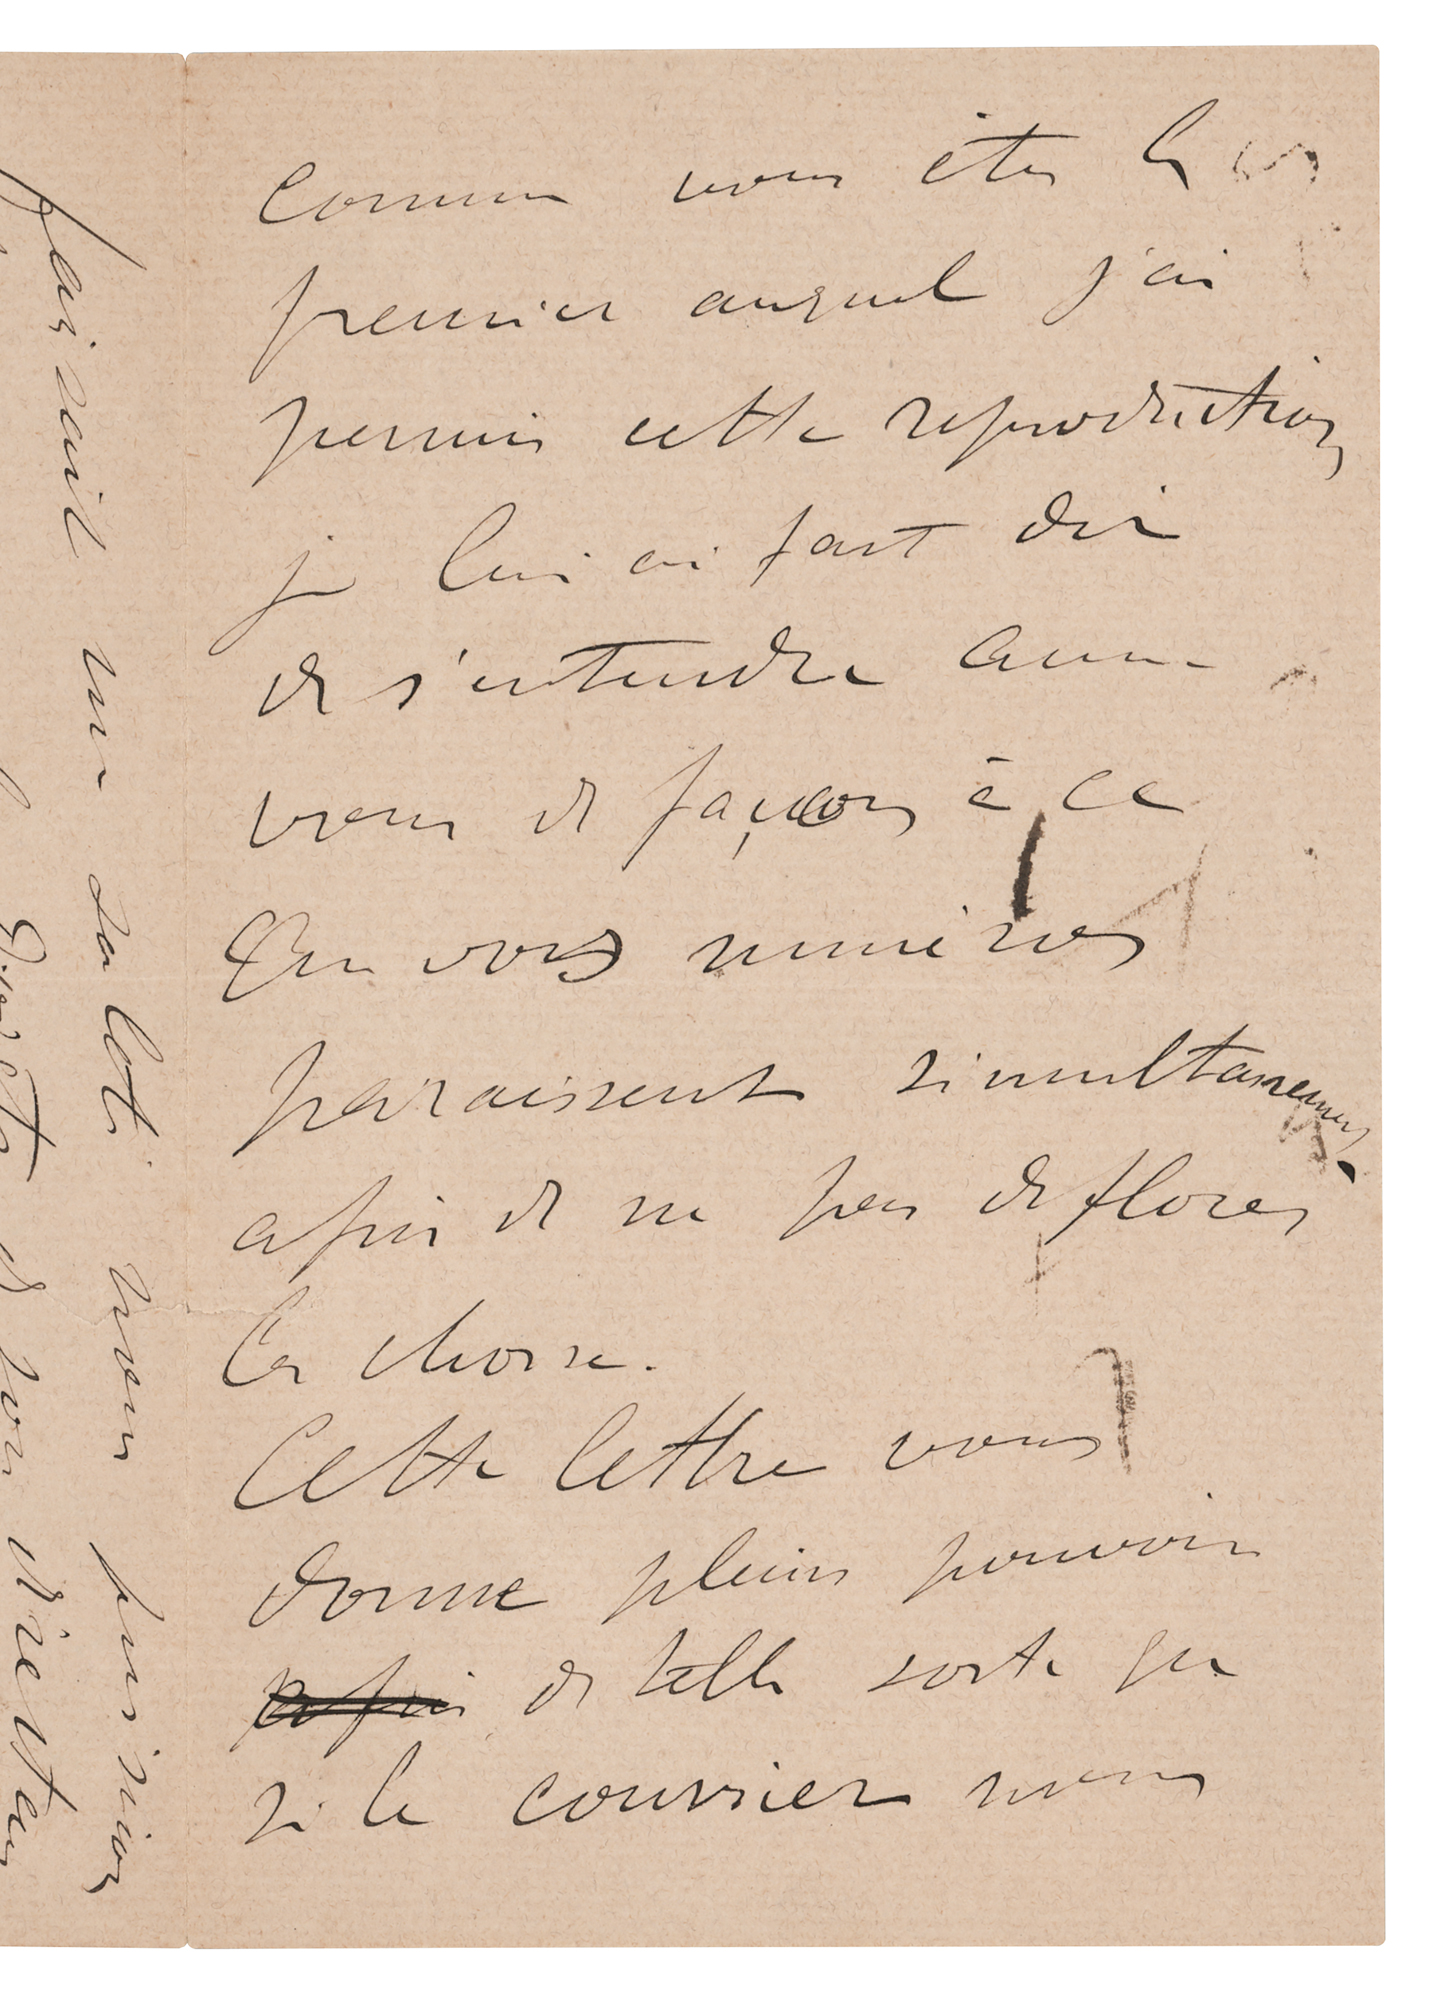 comme vous êtes le
premier auquel j'ai
permis cette reproduction
je lui ai fait dire
de s'entendre avec
vous de façon à ce
que vos numéros
paraissent simultanement
afin de ne pas deflorer
la chose.
Cette lettre vous
donne pleins pouvoirs
afin de telle sorte que
si le courrier nous
faisait
nous